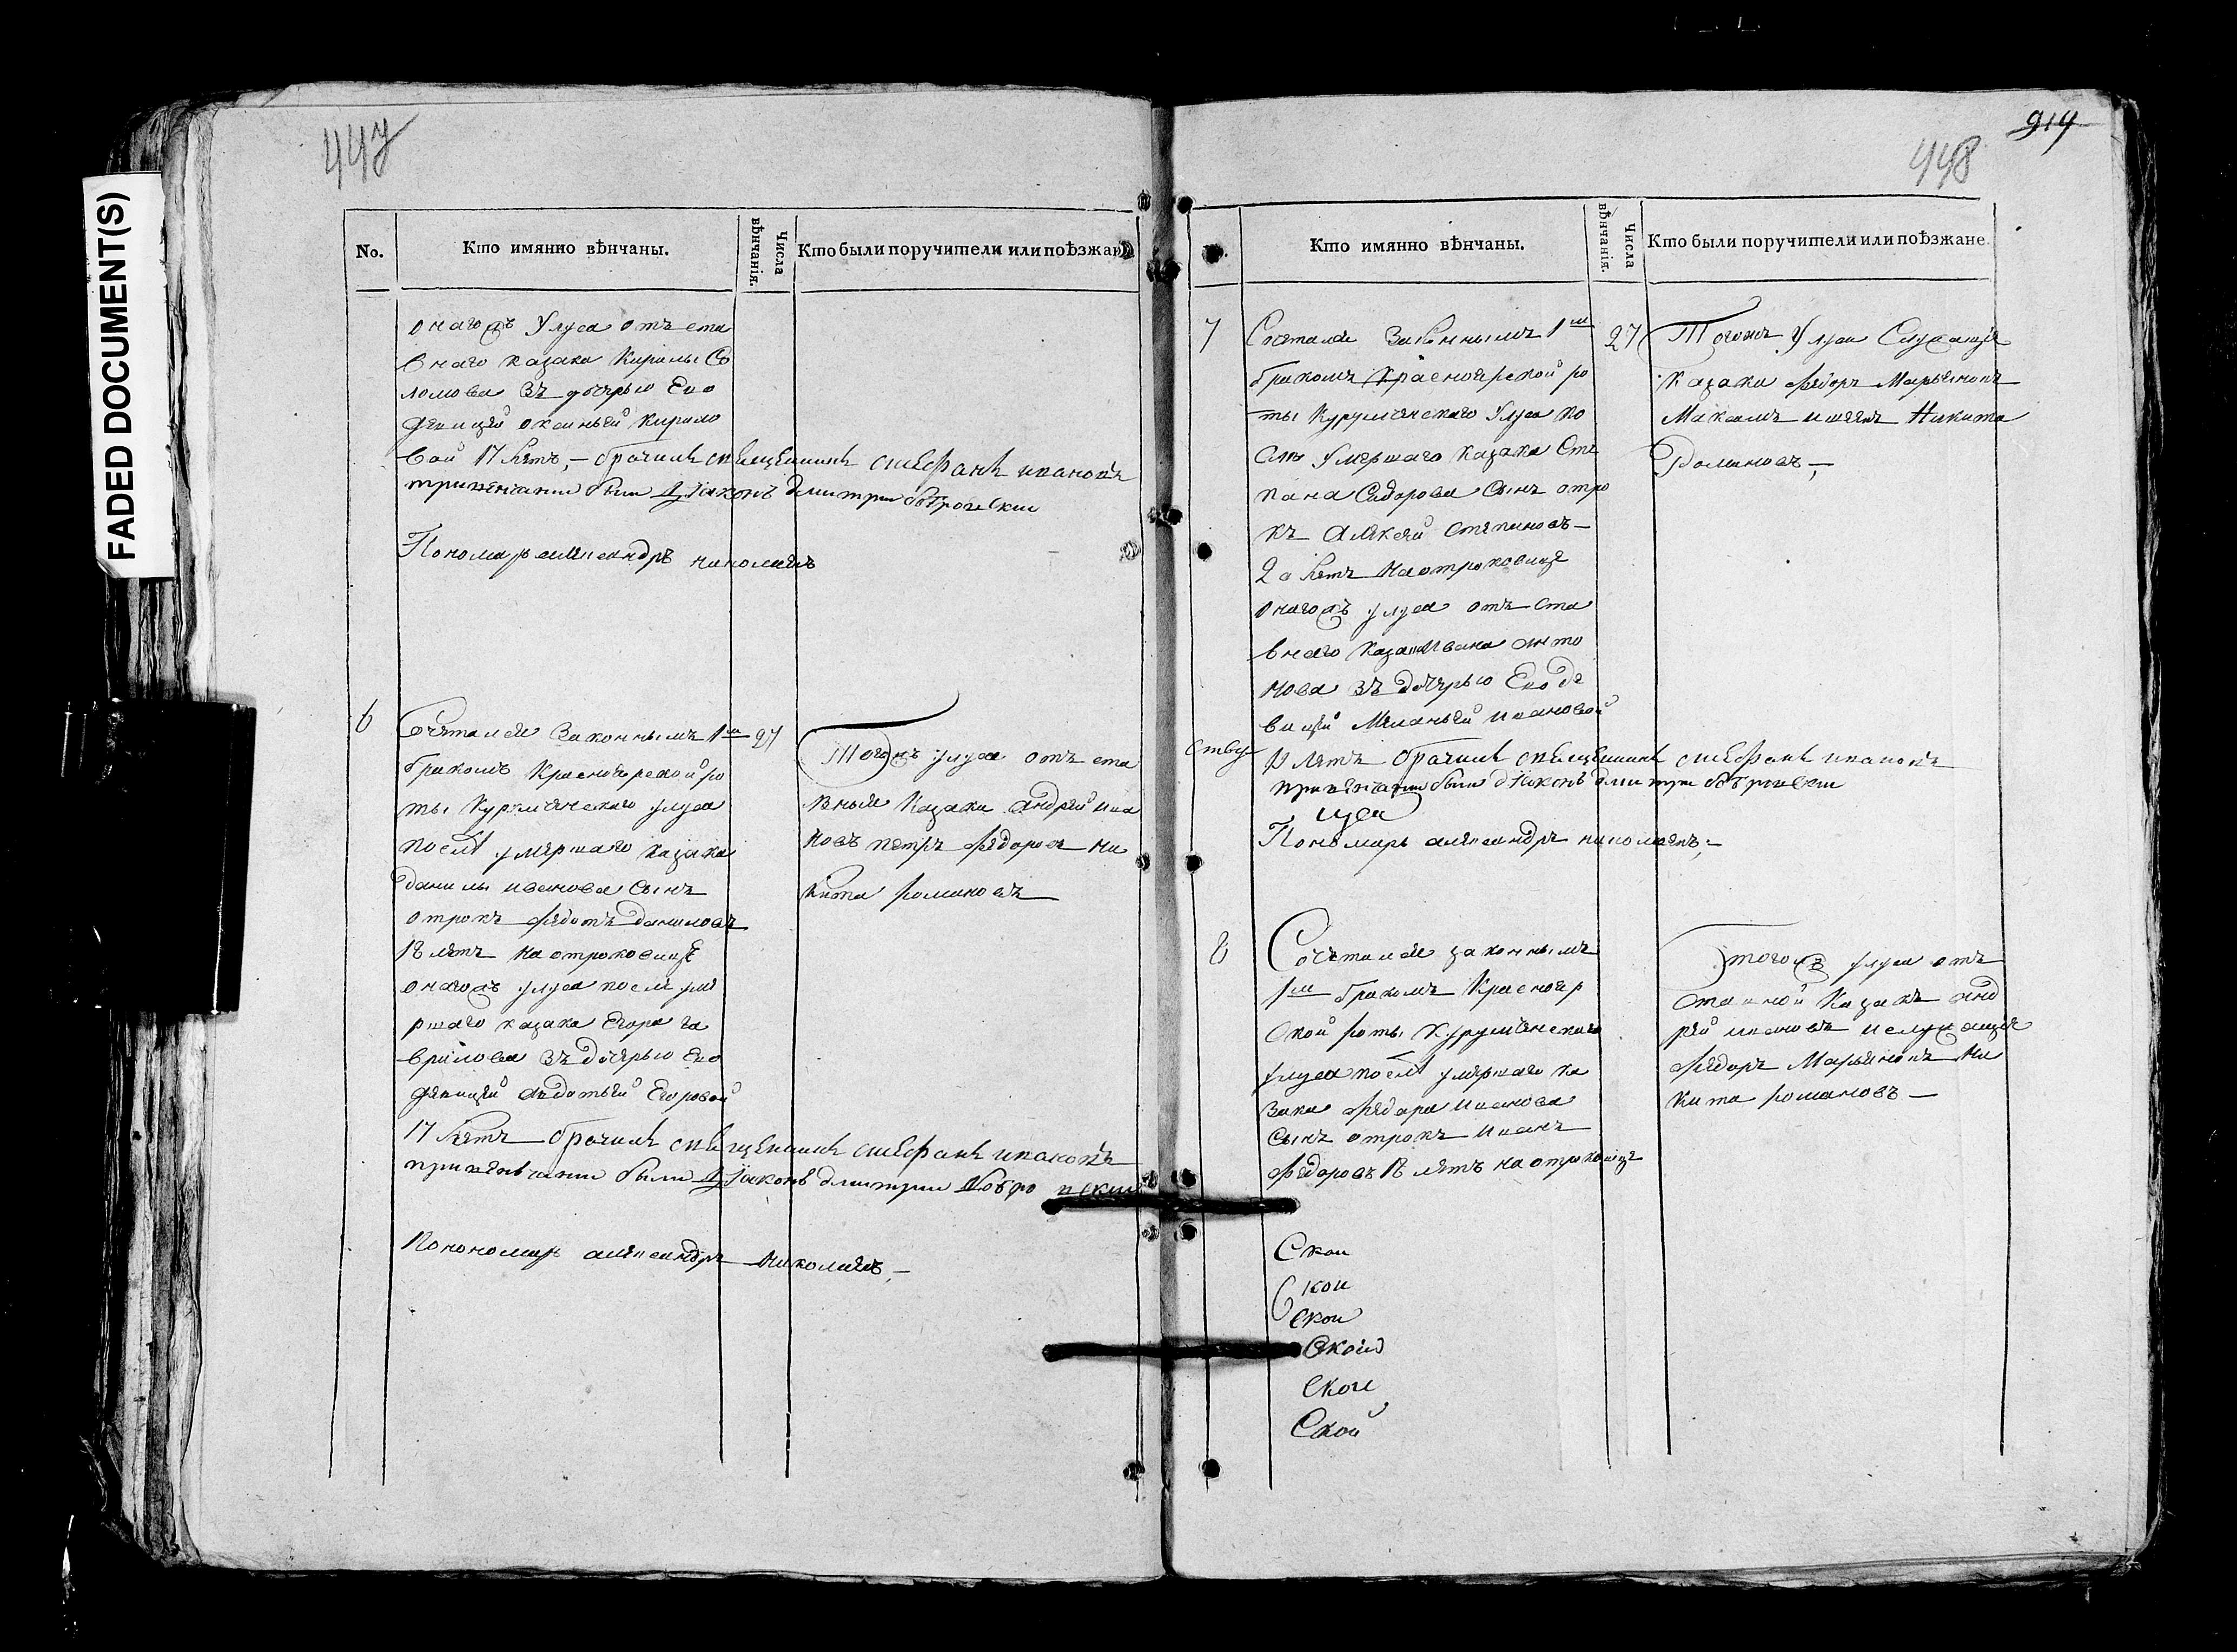 FADED DOCUMENT(S)
447
No.
Кто имянно вѣнчаны.
Числа вѣнчанія.
Кто были поручители или поѣзжан
онагожъ Улуса отъ ста
внаго казака Кирилы Со
ломова зъ дочерью Его
девицей Кирило
вой 17 летъ, — брачилъ священникъ Стефанъ ивановъ
привенчании были діаконъ дмитри
Пономарь александръ николаевъ
6
Сочетался Законнымъ 1м 27
бракомъ Красноярской ро
ты Курумчинскаго улуса
после умершаго казака
данилы иванова сынъ
отрокъ Федотъ даниловъ
18 летъ на отроковице
онагожъ улуса после уме
ршаго казака Егора га
врилова зъ дочерью Его
девицей авдотьей Егоровой
17 летъ брачилъ священникъ стефанъ ивановъ
привенчании были діаконъ дмитрии
Понономарь александръ николаевъ, —
Тогожъ улуса отъ ста
вные Казаки андрей ива
новъ петръ Федоровъ ни
кита романовъ
914
448
Кто имянно вѣнчаны.
Числа вѣнчанія.
Кто были поручители или поѣзжане.
7
Сочтался Законнымъ 1м 27
бракомъ Красноярской ро
ты Курумчинскаго Улуса по
слѣ Умершаго казака Сте
пана Сидорова Сынъ отро
къ Алексей степановъ —
20 летъ На отроковице
онагожъ улуса отъ ста
внаго казака Ивана анто
нова зъ дочерью Его де
вицей Меланьей ивановой
ству
летъ брачилъ священникъ стефанъ ивановъ
привенчании были діаконъ дмитри
Пономарь александръ николаевъ, —
Тогожъ Улуса Служащие
казаки Федоръ Марьяновъ
Максимъ Никита
Романовъ, —
8
Сочетался законнымъ
1м бракомъ Краснояр
ской роты Курумчинскаго
улуса после умершаго ка
зака Федора иванова
сынъ отрокъ иванъ
Федоровъ 18 летъ на отроковице
Ской
Ской
Ской
Ской
Ской
Ской
тогожъ улуса отъ
ставной Казакъ анд
рей ивановъ и служащие
Федоръ Марьяновъ Ни
кита романовъ —